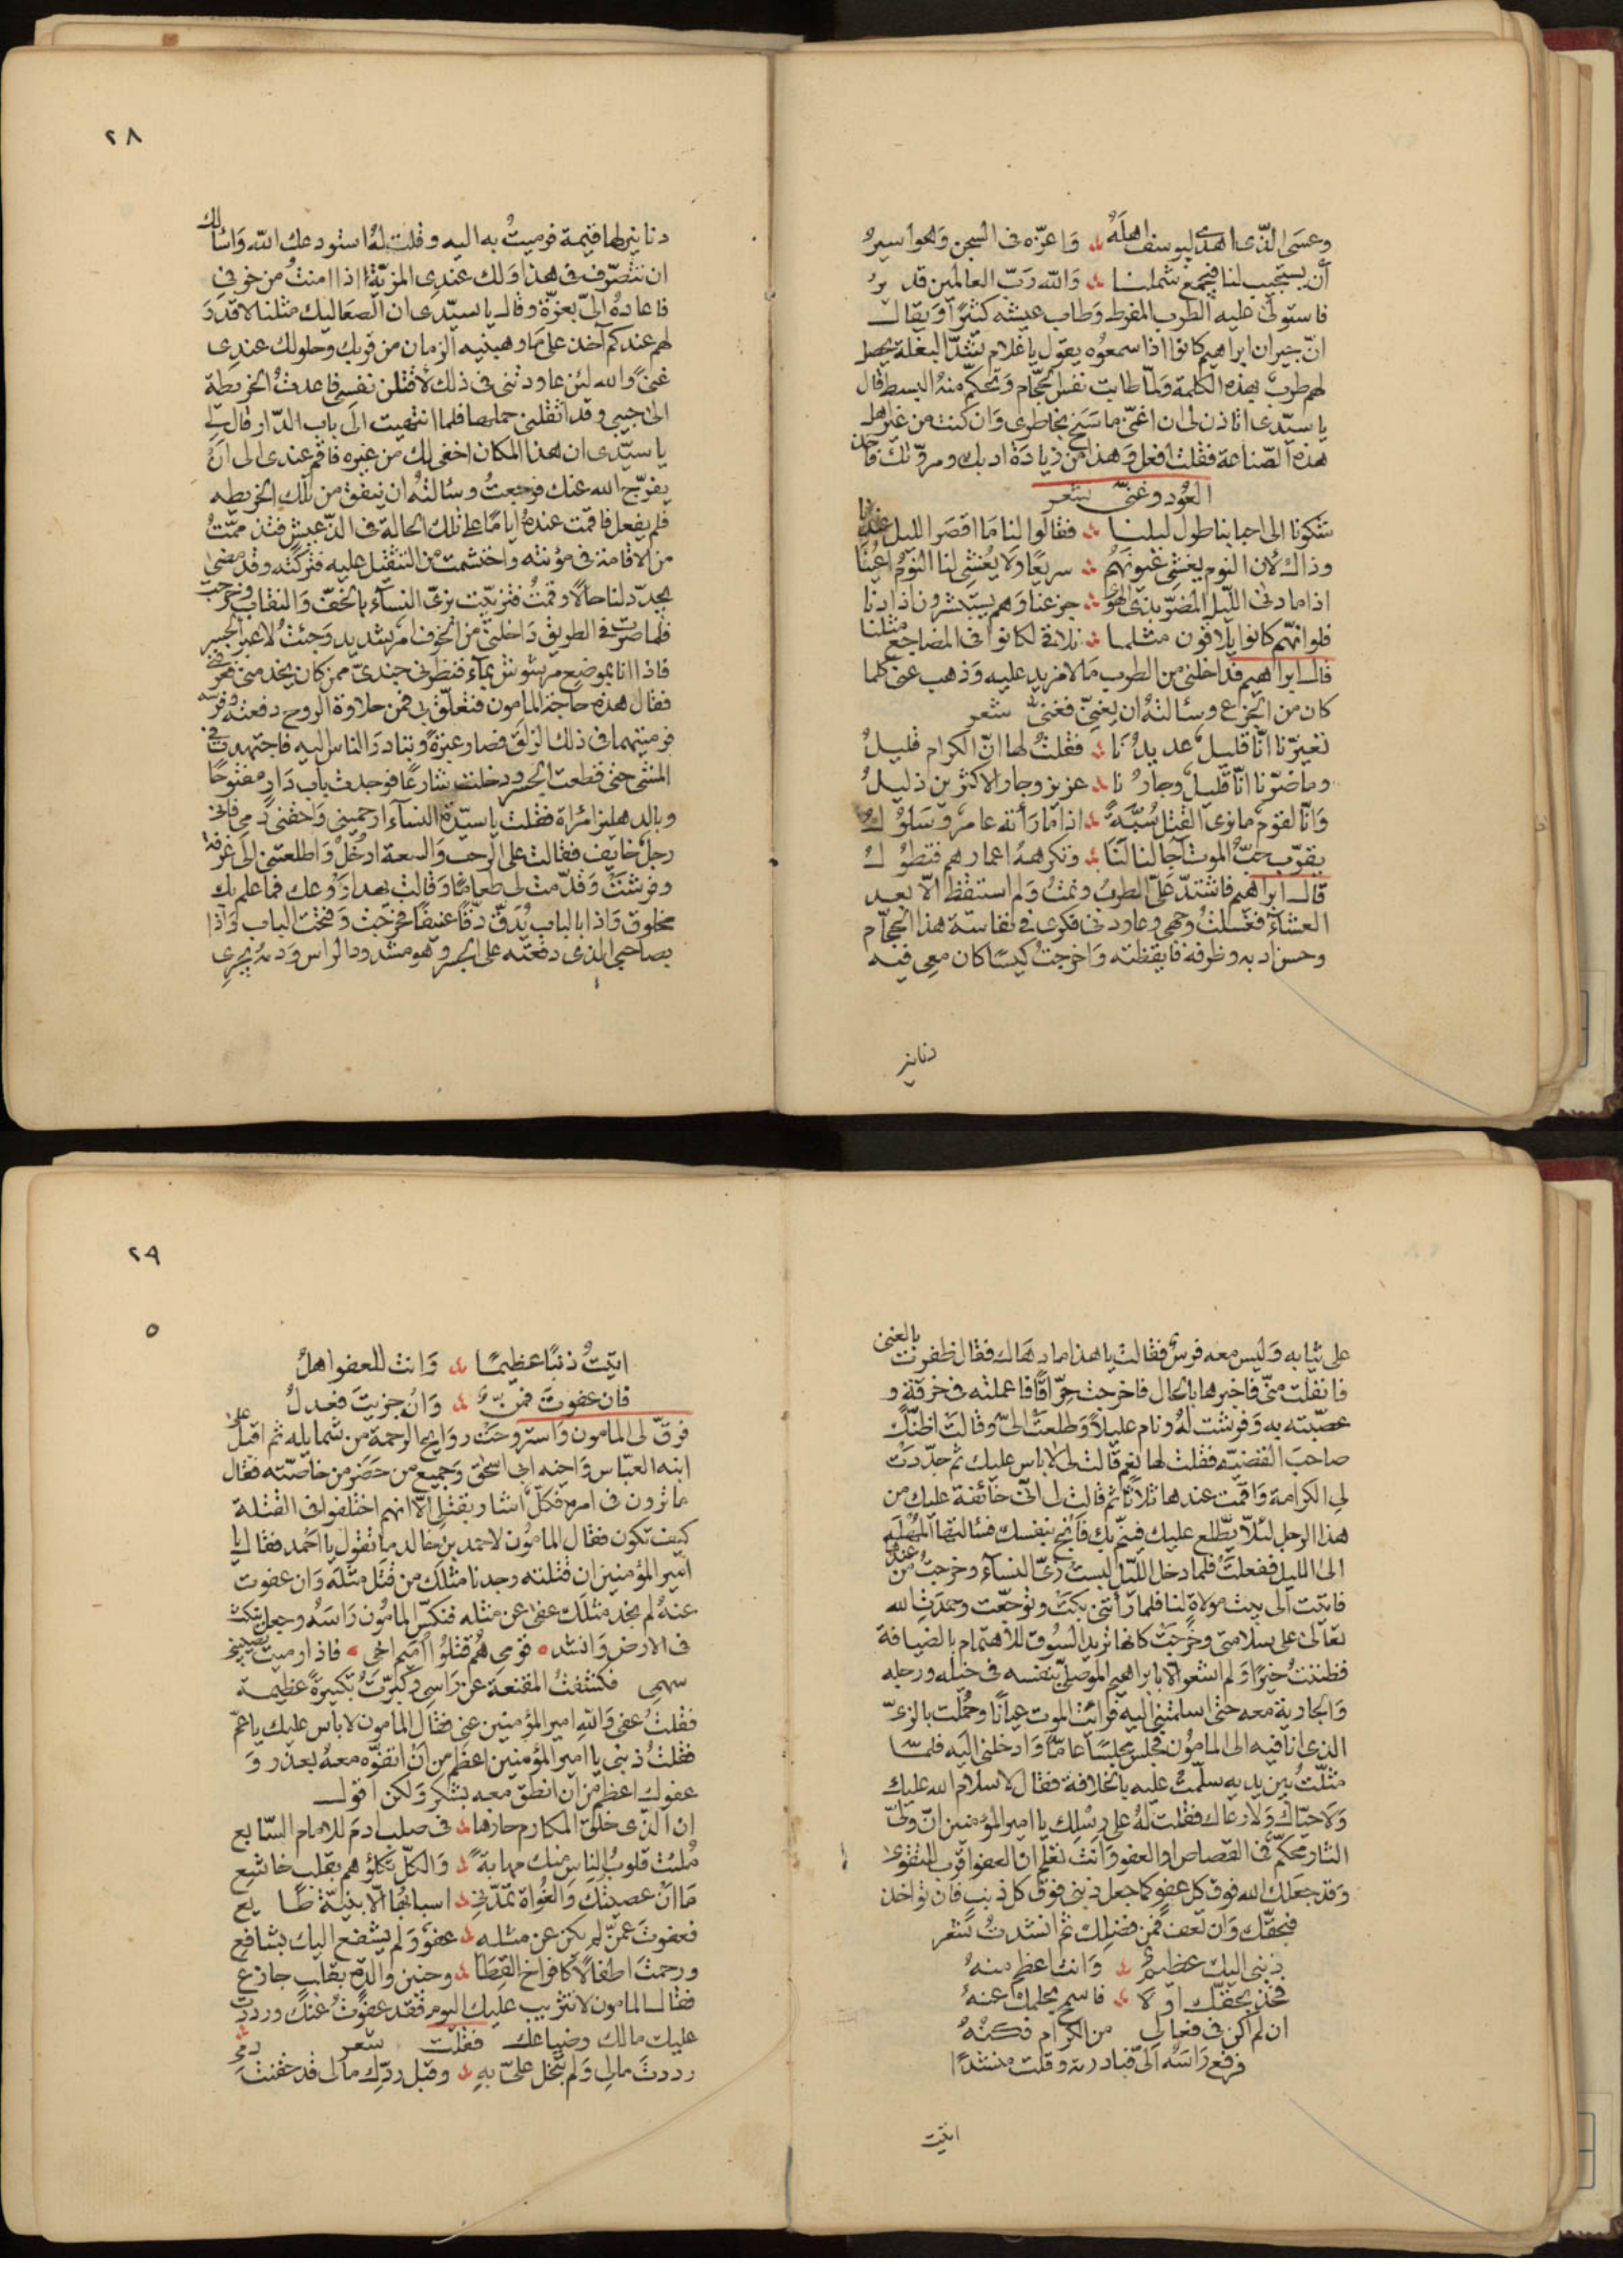 وعسى الذي اهدى ليوسف اهلَهُ ؞ وَاعزّه فى السجن وهوا سيرُ
أن يستجيب لنا فيجمع شملنا ؞ وَالله رَبّ العالمين قدير
فاستولى عليه الطرب المفرط وَطاب عيشه كثيرًا وَيقال
انّ جيران ابراهيم كانوا اذا سمعوه يقول ياغلام شدّ البغلة يحصل
لهم طرب بهذه الكلمة وَلمّا طابت نفس الحجّام وَتحكّم منهُ البسط قال
ياسيّدى اتاذن لى ان اغنّى ما سَنَح بخاطرى وَان كنت من غير اهل
هذه الصّناعة فقلت افعل وَهذا من زيادَة ادبك ومروّتك فاخذ
العُود وغنىّ شعر
شكونا الى احبابنا طول ليلنا ؞ فقالوا لنا مَا اقصَر الليل عندنا
وذاك لان النوم يغشى عيونهُم ؞ سريعًا وَلا يُغشى لنا النوَم اعيُنَا
اذا ما دنى اللّيل المضرّ بذى الهوَى ؞ جزعنا وَهم يستبشرون اذا دنا
فلو انهّم كانوا يلاقون مثلما ؞ نلاقى لكانوا فى المضاجع مثلنا
قال ابراهيم فداخلنى من الطرب مَا لا مزيد عليه وَذهب عنى كلما
كان من الجزع وسئالتهُ ان يغنىّ فغنىّ شعر
تعيرّنا انّا قليل عديدُنَا ؞ فقلتُ لها انّ الكرام قليلُ
وماضرّنا انّا قليل وجارُنا ؞ عزيز وجار الاكثرين ذليلُ
وَانّا لقوم مانرى القتل سُبّةً ؞ اذا مَا رَأته عامر وَسَلولُ
يقرّب حبّ الموت آجالنا لنَا ؞ وتكرههُ اعمارهم فتطولُ
قال ابراهيم فاشتدّ عَلىّ الطربُ ونمتُ وَلم استيقظ الّا بعد
العشاء فغسلتُ وجهى وعاودنى فكرى فى نفاسة هذا الحجّام
وحسن ادبه وظرفه فايقظته وَاخرجتُ كيسًا كان معى فيه
دنانير
٢٨
دنانير لها قيمة فرميتُ به اليه وقلت لهُ استودعك الله وَاسْالك
ان تتصّرف فى هذا وَلك عندى المزيّة اذا امنتُ من خوفى
فاعادهُ الىّ بعزّة وقال ياسيّدى ان الصَعاليك مثلنا لا قدرَ
لهم عندكم آخذ على مَا وهبنيه الزمان من قربك وحلولك عندى
غنىً والله لئن عاودتنى فى ذلك لاقتلن نفسى فاعدتُ الخريطة
الى جيبى وقد اثقلنى حملها فلما انتهيت الى باب الدّار قال لى
ياسيّدى ان هذا المكان اخفى لك من غيره فاقم عندى الى انْ
يفرّج الله عنك فرجعتُ وسئالتهُ ان ينفق من تلك الخريطه
فلم يفعل فاقمت عندهُ ايامًا على تلك الحالة فى الذّ عيش فتذممّتُ
من الاقامة فى مؤنته وَاحتشمت من التثقيل عليه فتركته وقد مضىٰ
يجدّد لنا حالًا وقمتُ فتزيّيت بزىّ النسآء بالخفّ وَالنقاب وخرجت
فلما صرت فى الطريق دَاخلنى من الخوف امر شديد وَجئتُ لا عبر الجسر
فاذا انا بموضع مرشوش بمآء فنظرنى جندىّ ممن كان يخدمنى فعرفنى
فقال هذه حاجة المامون فتعلّق بى فمن حلاوة الروح دفعته وفرسَه
فرميتهما فى ذلك الزلق فصار عبرةً وتبادرَ الناس اليه فاجتهدت فى
المشى حتى قطعت الجسر ودخلت شارعًا فوجدت باب دَار مفتوحًا
وبالدهليز امرَاة فقلت ياسيّدة النسآء ارحمينى وَاحقنى دمى فانى
رجل خايف فقالت على الرحب وَالسعة ادخُلْ وَاطلعتنى الى غرفة
وفرشَتْ وَقدّمت لى طعامًا وَقالت يهدا رَوْعك فما علم بك
مخلوق وَاذا بالباب يُدَقّ دقّاً عنيفًا فخرجت وَفتحت الباب وَاذا
بصاحبى الذى دفعته على الجسر وهو مشدود الراس وَدمهُ يجرى
على ثيابه وَليس معه فرسٌ فقالت ياهذا ما دهَاك فقال ظفرت بالغنى
فانفلت منّى فاخبرها بالحال فاخرجت حرّاقًا فاعملته فى خرقة و
عصّبته به وَفرشت لهُ ونام عليلاً وَطلعَتْ الىّ وقالت اظنّك
صاحبَ القضيّة فقلت لها نعم قالت لى لاباس عليك ثم جدّدَتْ
لى الكرامة وَاقمت عندها ثلاثًا ثم قالت لى انىّ خائفة عليك من
هذا الرجل لئلاّ يطّلع عليك فينمّ بك فَانجُ بنفسك فسئالتها المُهلَة
الى الليل ففعلَتْ فلما دخل اللّيل لبست زىّ النسآء وخرجتُ من عندها
فاتيت الى بيت مولاة لنا فلما رَأتنى بَكَتْ وتوجّعت وحمدَتِ الله
تعالى على سلامتى وخَرجَتْ كانها تريد السُوق للاهتمام بالضيافة
فظننتُ خيرًا وَلم اشعر الا بابراهيم الموصلىّ بنفسه فى خيله ورجله
وَالجارية معه حتى اسلمتنى اليه فرايت الموت عيانًا وحُملت بالزىّ
الذى انا فيه الى المامُون فجلس مجلسًا عامّاً وَادخلنى اليه فلمّا
مثلتُ بين يديه سلّمت عليه بالخلافة فقال لا سلام الله عليك
وَلَا حيّاك وَلا رعَاك فقلت لهُ على رِسْلك ياامير المؤمنين انّ ولىّ
الثار محكّم فى القصاص او العفو وَانتَ تعلم ان العفو اقرب للتقوى
وَقد جعلك الله فوق كل عفو كما جعل ذنبى فوق كل ذنب فان تواخذ
فبحقّك وَان تعف فمن فضلك ثم انشدتُ شعر
ذنبى اليك عظيمٌ ؞ وَانت اعظم منهُ
فخذ بحقّك اوّلا ؞ فاسمح بحلمك عنهُ
ان لم اكن فى فعالى من الكرام فكُنْهُ
فرفع رَاسَه الىّ فبادرته وقلت منشدًا
اتيت
٢٩
٥
اتيتُ ذنبًا عظيمًا ؞ وَانت للعفو اهلُ
فان عفوتَ فمنّ ؞ وَانْ جزيتَ فعدلُ
فرقّ لى المامون وَاستروحَتْ روَايح الرحمة من شمايله ثم اقبلَ على
ابنه العبّاس وَاخيه ابى اسحٰق وَجميع من حَضَر من خاصّته فقال
ماترون فى امره فكلّ اشار بقتلى الّا انهم اختلفوا فى القتلة
كيف تكون فقال المامُون لاحمد بن خالد ما تقول يااحمد فقال يا
امير المؤمنين ان قتلته وجدنا مثلك من قتل مثلَه وَان عفوت
عنهُ لم نجد مثلَك عفى عن مثله فنكسّ المامُون رَاسَهُ وجعل ينكث
فى الارض وَانشد ؞ قومى هُمُ قتلُوا اُمَيم اخى ؞ فاذا رميت يصيبنى
سهمى فكشفتُ المقنعة عن رَاسى وكبّرتُ تكبيرةً عظيمة
فقلتُ عفى وَالله امير المؤمنين عنى فقال المامون لاباس عليك ياعمّ
فقلتُ ذنبى ياامير المؤمنين اعظم من انْ اتفوّه معهُ بعذر وَ
عفوك اعظم من ان انطق معه بشكر وَلكن اقول
ان الذى خلق المكارم حازها ؞ فى صلب ادمَ للامام السّابع
مُلئت قلوبُ الناس منك مهابةً ؞ وَالكلّ تكلؤهم بقلب خاشع
مَا انْ عصيتُك وَالغُواة تمدّنى ؞ اسبابُها الّا بنيّة طايع
فعفوتَ عمّن لم يكن عن مثله ؞ عفوٌ وَلم يشفع اليك بشافع
ورحمتَ اطفالًا كافراخ القطَا ؞ وحنين والدةٍ بقلب جازع
فقال المامون لا تثريب عليك اليوم فقد عفوْتُ عنك ورددت
عليك مالك وضياعك فقلت شعر
رددتَ مالى وَلم تبخل علىّ به ؞ وقبل ردّك مالى قد حقنتَ دمى